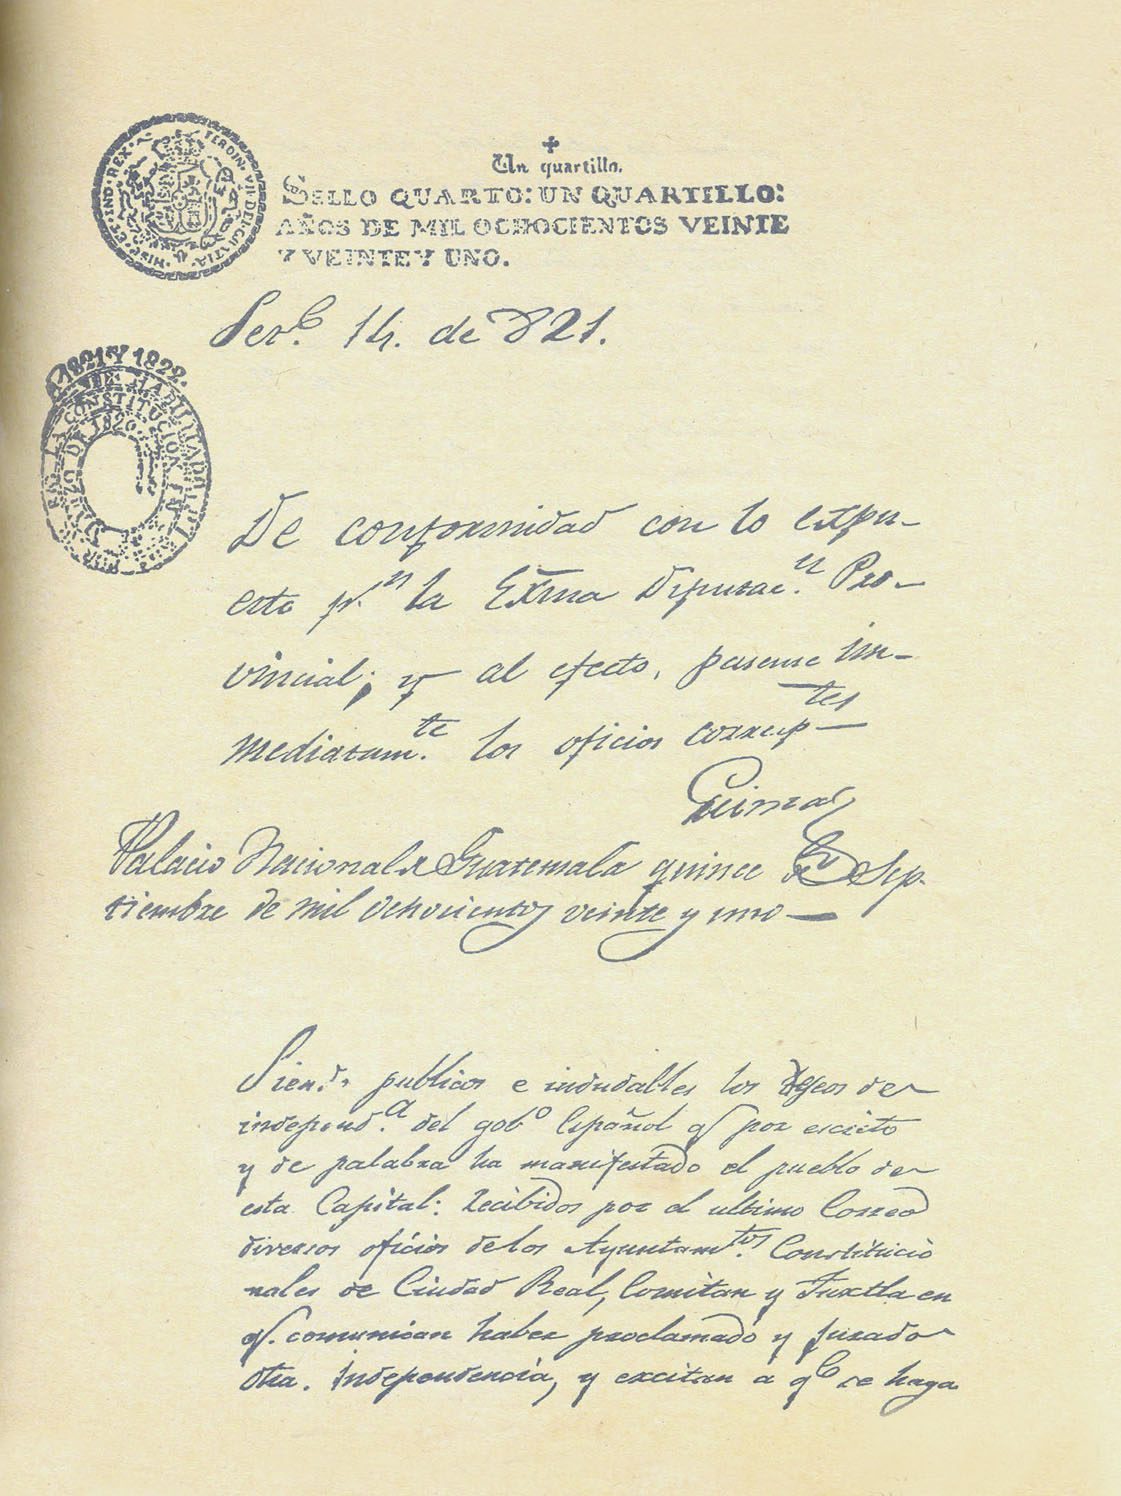 FERDIN. VII. DEI. GRATIA. HISP. ET. IND. REX.
Un quartillo.
SELLO QUARTO: UN QUARTILLO:
AÑOS DE MIL OCHOCIENTOS VEINTE
Y VEINTE Y UNO.
14. de 821.
1821 Y 1822.
HABILITADO
LA CONSTITUCION
DE 1820.
De conformidad con lo expu-
esto pr.n la Exma Diputac.n Pro-
vincial; y al efecto, pasense in-
mediatam.te los oficios corresp-tes
Palacio Nacional de Guatemala quince de Sep-
tiembre de mil ochocientos veinte y uno
Siend.o publicos e indudables los deseos de
independ.a del gob.o Español q por escrito
y de palabra ha manifestado el pueblo de
esta Capital: recibidos por el ultimo Correo
diversos oficios de los Ayuntam.tos Constitucio
nales de Ciudad Real, Comitan y Tuxtla en
q. comunican haber proclamado y jurado
dha. independencia, y excitan a q.e se haga